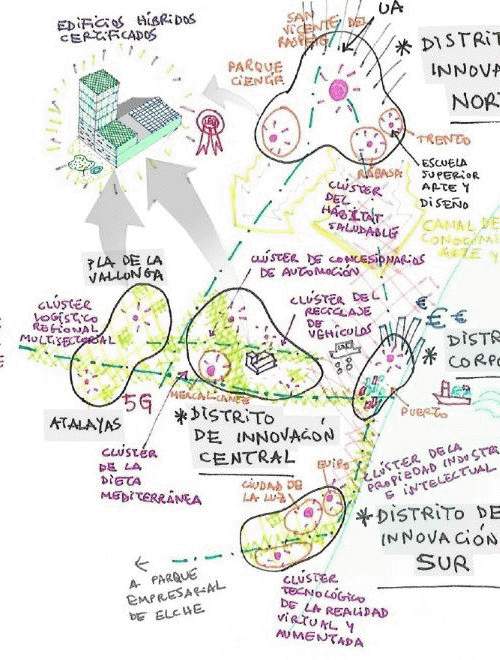 EDIFICIOS HÍBRIDOS
CERTIFICADOS
SAN
VICENTE DEL
RASPEIG
UA
* DISTRIT
INNOVA
NOR
PARQUE
CIENCIE
TRENTO
RABASA
ESCUELA
SUPERIOR
ARTE Y
DISEÑO
CLÚSTER
DEL
HÁBITAT
SALUDABLE
CANAL DE
CONOCIM
ARTE Y
PLA DE LA
VALLONGA
CLÚSTER DE CONCESIONARIOS
DE AUTOMOCIÓN
CLÚSTER
LOGÍSTICO
REGIONAL
MULTISECTORIAL
CLÚSTER DEL
RECICLAJE
DE
VEHÍCULOS
€ € €
* DISTR
CORPO
PUERTO
ATALAYAS
5G
MERCALICANTE
* DISTRITO
DE INNOVACIÓN
CENTRAL
CLÚSTER
DE LA
DIETA
MEDITERRÁNEA
EUIPO
CIUDAD DE
LA LUZ
CLÚSTER DE LA
PROPIEDAD INDUSTRI
E INTELECTUAL
* DISTRITO DE
INNOVACIÓN
SUR
A PARQUE
EMPRESARIAL
DE ELCHE
CLÚSTER
TECNOLÓGICO
DE LA REALIDAD
VIRTUAL Y
AUMENTADA